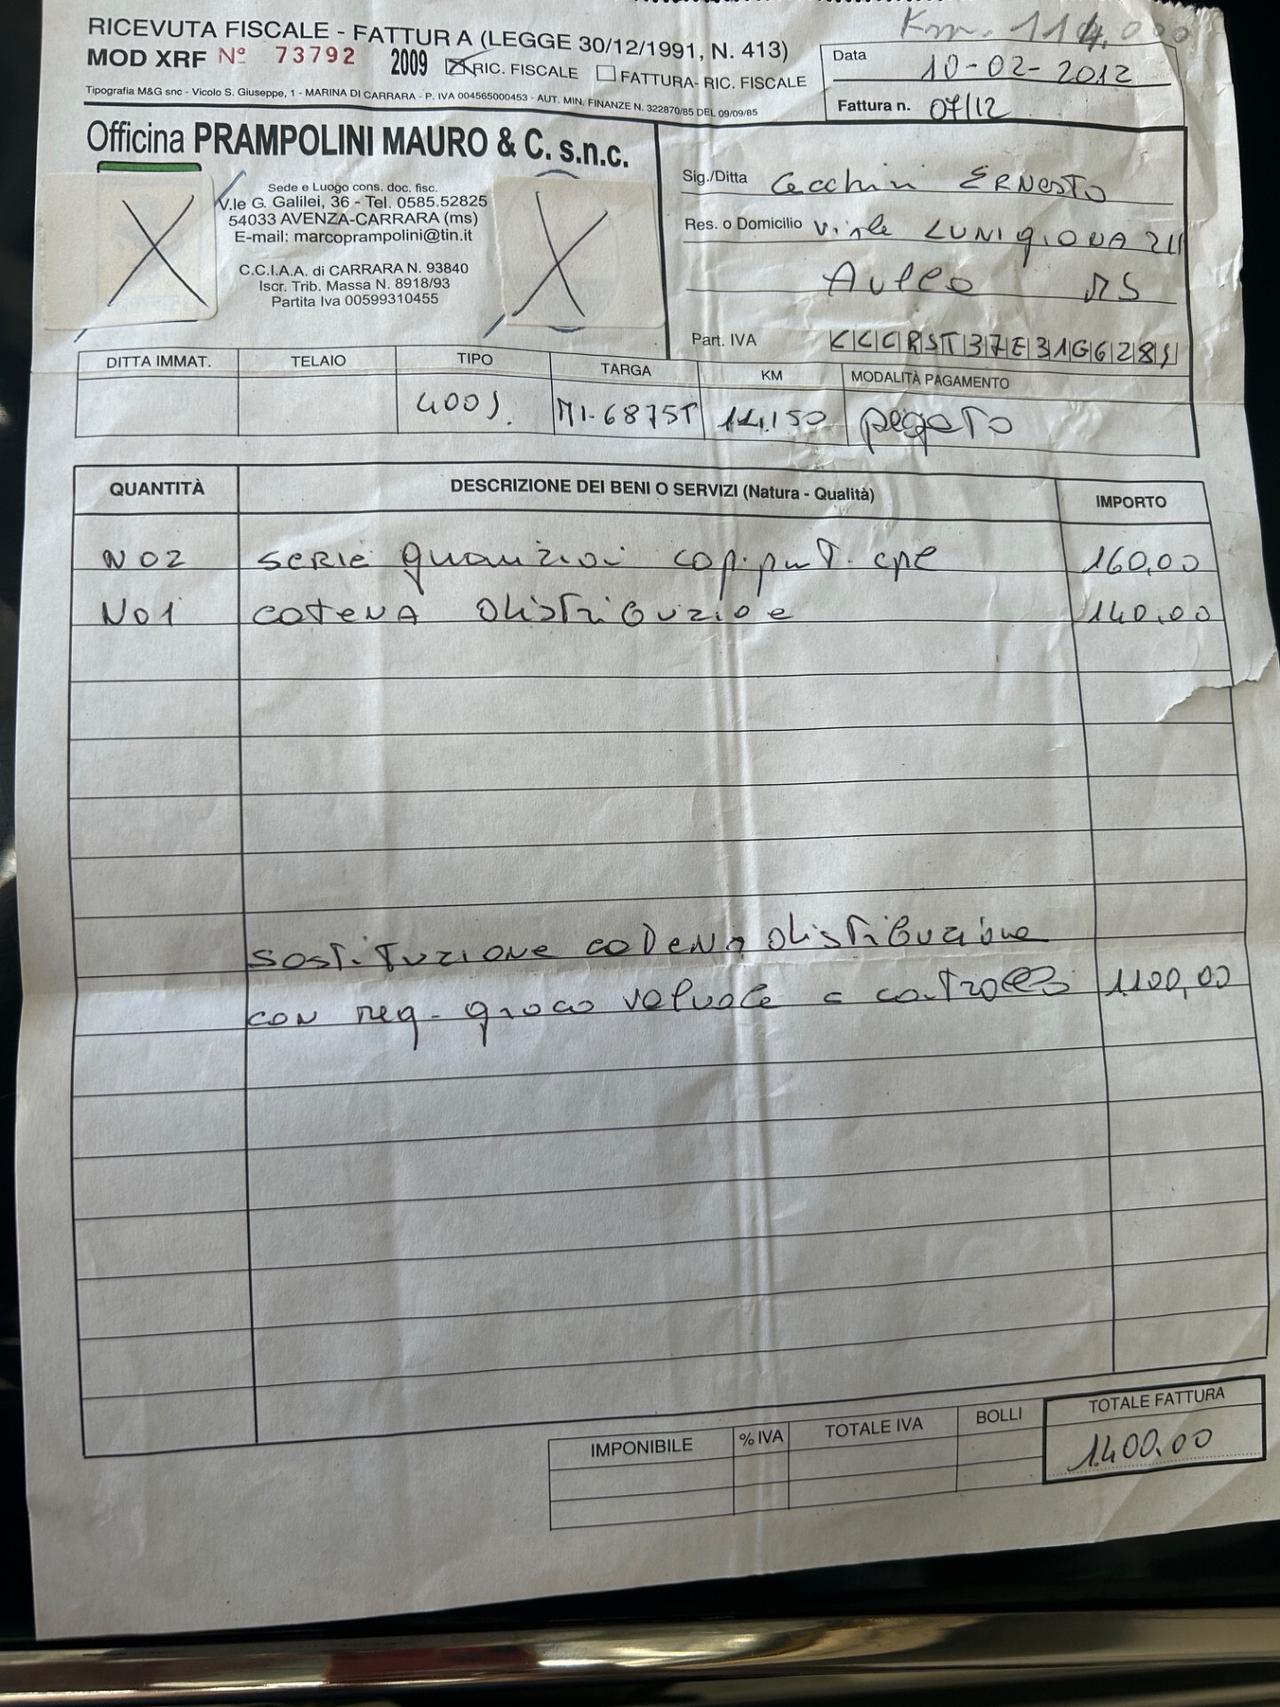 Km. 114.000
RICEVUTA FISCALE - FATTURA (LEGGE 30/12/1991, N. 413)
MOD XRF Nº 73792 2009 RIC. FISCALE FATTURA- RIC. FISCALE
Tipografia M&G snc - Vicolo S. Giuseppe, 1 - MARINA DI CARRARA - P. IVA 004565000453 - AUT. MIN. FINANZE N. 322870/85 DEL 09/09/85
Data 10-02-2012
Fattura n. 07/12
Officina PRAMPOLINI MAURO & C. s.n.c.
Sede e Luogo cons. doc. fisc.
V.le G. Galilei, 36 - Tel. 0585.52825
54033 AVENZA-CARRARA (ms)
E-mail: marcoprampolini@tin.it
C.C.I.A.A. di CARRARA N. 93840
Iscr. Trib. Massa N. 8918/93
Partita Iva 00599310455
Sig./Ditta Cecchini ERNESTO
Res. o Domicilio viale LUNIGIONA
AULLO MS
Part. IVA CCCRST37E31G628S
DITTA IMMAT. TELAIO TIPO TARGA KM MODALITÀ PAGAMENTO
400S. MI-6875T 114.150 pagato
QUANTITÀ DESCRIZIONE DEI BENI O SERVIZI (Natura - Qualità) IMPORTO
N 02 SERIE guarnizioi cop. punt. cpl 160,00
N 01 catena distribuzioe 140,00
sostituzione catena distribuzione
con reg. gioco valvole e controllo 1100,00
IMPONIBILE % IVA TOTALE IVA BOLLI TOTALE FATTURA
1.400.00